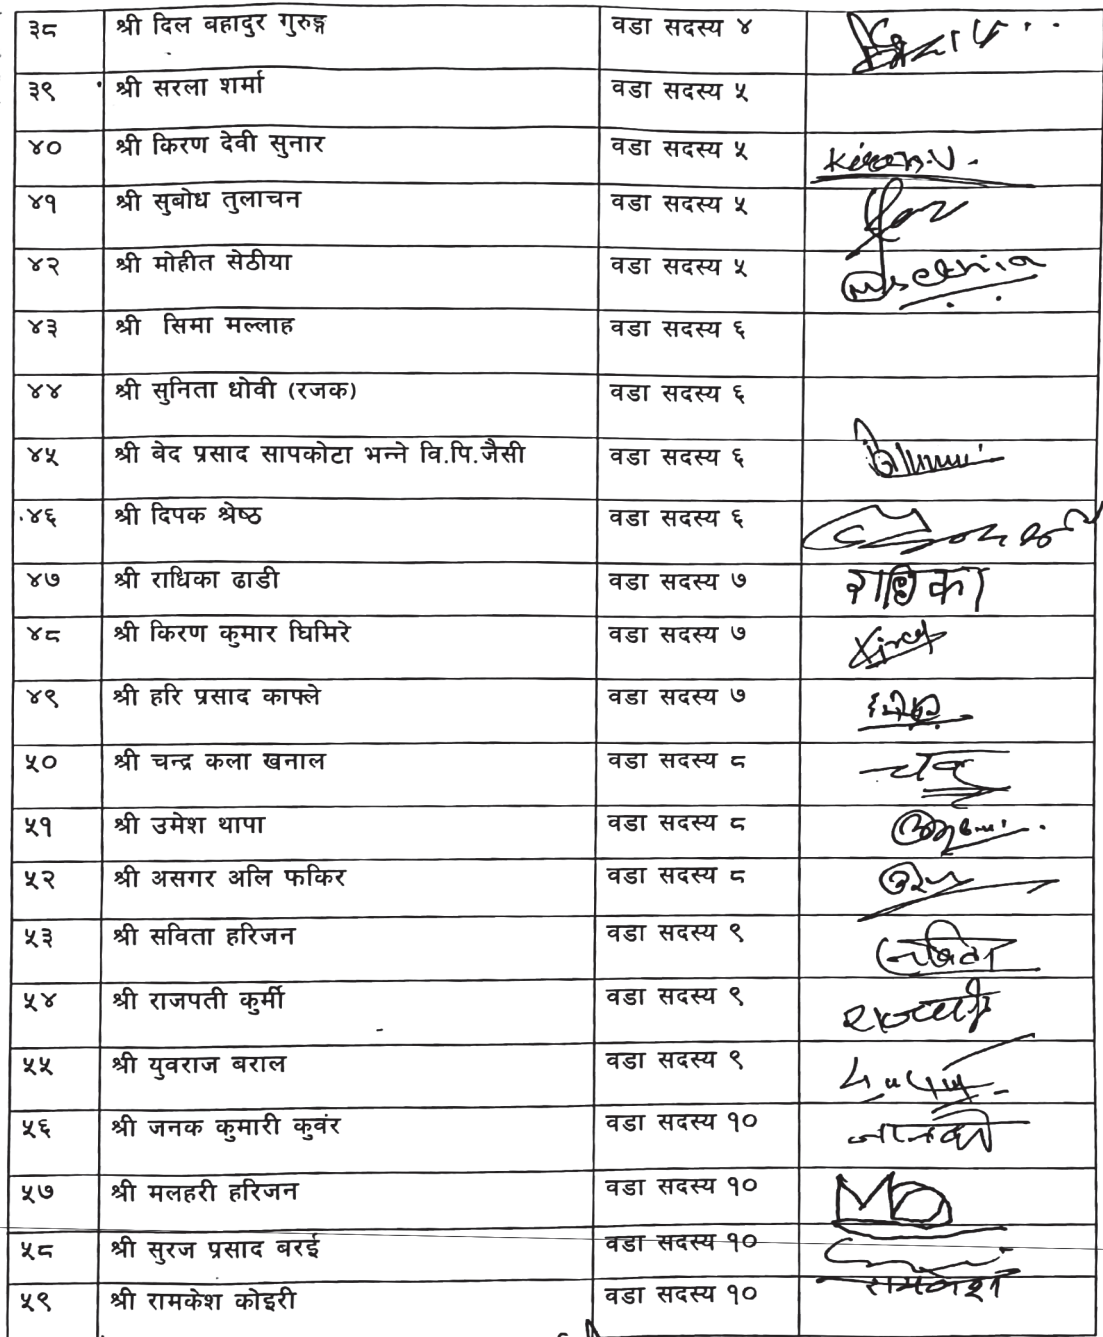 ३८ श्री दिल बहादुर गुरुङ्ग वडा सदस्य ४
३९ श्री सरला शर्मा वडा सदस्य ५
४० श्री किरण देवी सुनार वडा सदस्य ५
४१ श्री सुबोध तुलाचन वडा सदस्य ५
४२ श्री मोहीत सेठीया वडा सदस्य ५
४३ श्री सिमा मल्लाह वडा सदस्य ६
४४ श्री सुनिता धोवी (रजक) वडा सदस्य ६
४५ श्री बेद प्रसाद सापकोटा भन्ने वि.पि.जैसी वडा सदस्य ६
४६ श्री दिपक श्रेष्ठ वडा सदस्य ६
४७ श्री राधिका ढाडी वडा सदस्य ७ राधिका
४८ श्री किरण कुमार घिमिरे वडा सदस्य ७
४९ श्री हरि प्रसाद काफ्ले वडा सदस्य ७
५० श्री चन्द्र कला खनाल वडा सदस्य ८
५१ श्री उमेश थापा वडा सदस्य ८
५२ श्री असगर अलि फकिर वडा सदस्य ८
५३ श्री सविता हरिजन वडा सदस्य ९
५४ श्री राजपती कुर्मी वडा सदस्य ९
५५ श्री युवराज बराल वडा सदस्य ९
५६ श्री जनक कुमारी कुवंर वडा सदस्य १०
५७ श्री मलहरी हरिजन वडा सदस्य १०
५८ श्री सुरज प्रसाद बरई वडा सदस्य १०
५९ श्री रामकेश कोइरी वडा सदस्य १०